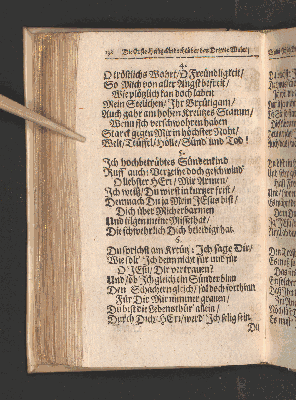 4.
O tröstlichs Wohrt / O Freündligkeit /
So Mich von aller Angst befreit /
Wie plötzlich kan doch laben
Mein Seelichen / Ihr Breütigam /
Auch gahr am hohen Kreützes Stamm /
Stark gegen Mir in höchster Noht /
Welt / Teüffel / Hölle / Sünd' und Tod!
5.
Ich hochbetrübtes Sündenkind
Ruff' auch: Verzeihe doch geschwind
O liebster HErr / Mir Armen:
Ich weiß / Du wirst in kurtzer frist /
Demnach Du ja Mein JEsus bist /
Dich über Mich erbarmen
Und tilgen meine Missethat /
Die schwehrlich Dich beleidigt hat.
6.
Du sprichst am Kreütz: Ich sage Dir /
Wie solt' Ich denn nicht für und für
O JEsu / Dir vertrauen?
Und / ob Ich gleich ein Sünder bin
Dem Schächer gleich / sol doch forthinn
Für Dir Mir nimmer grauen /
Du bist die Lebensthür' allein /
Durch Dich / HErr / werd' Ich selig sein.
Du